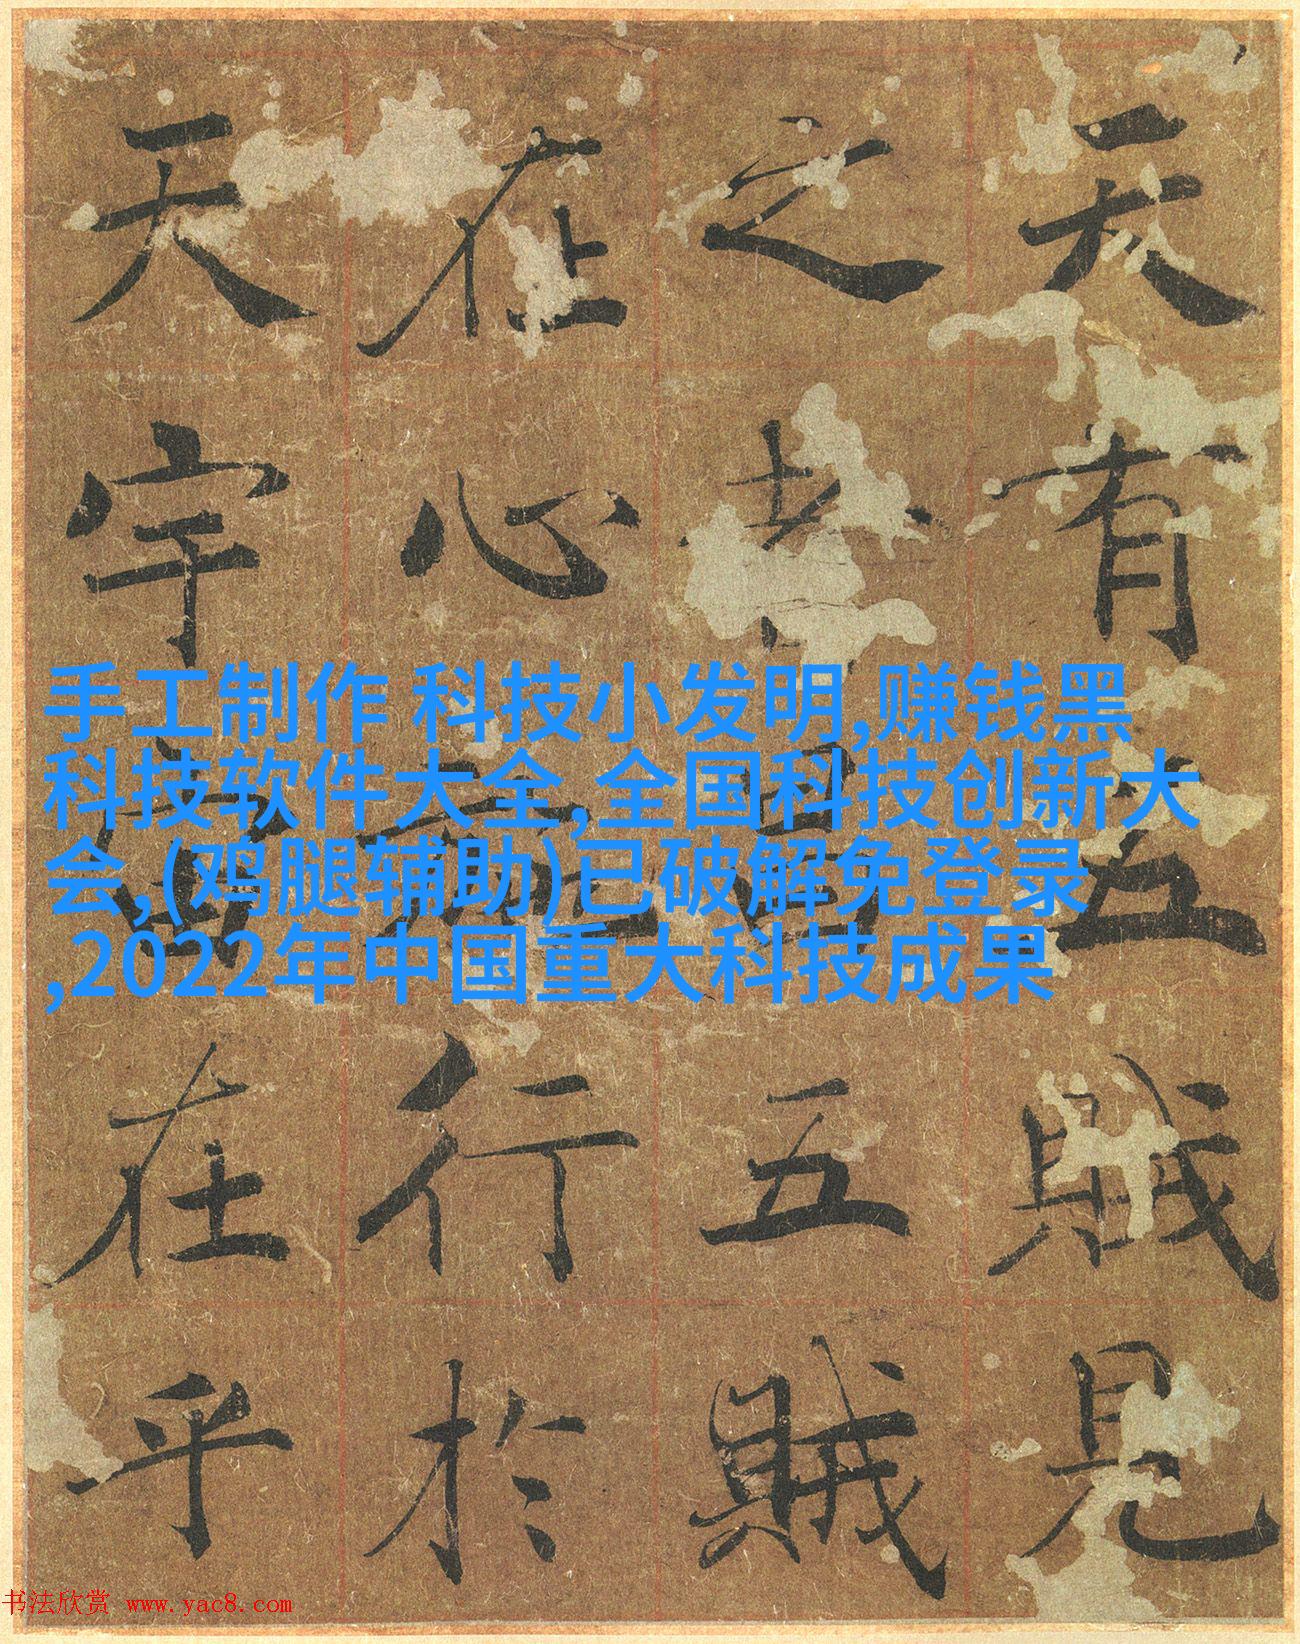 天有五賊見
之者昌五賊
在心施行於
天宇宙在乎
手工制作 科技小发明,赚钱黑
科技软件大全,全国科技创新大
会,(鸡腿辅助)已破解免登录
,2022年中国重大科技成果
书法欣赏 www.yac8.com